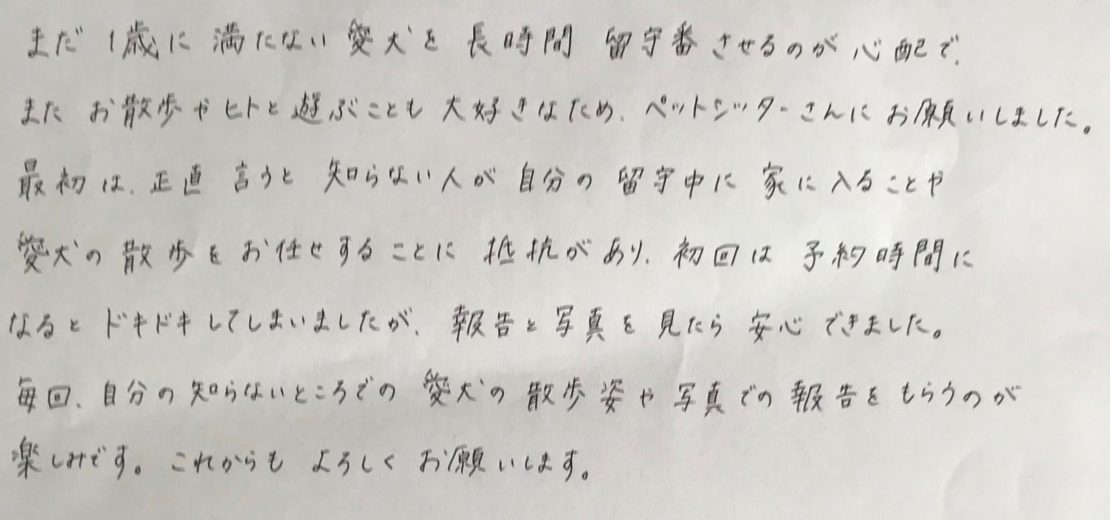 まだ1歳に満たない愛犬を長時間留守番させるのが心配で、
またお散歩やヒトと遊ぶことも大好きなため、ペットシッターさんにお願いしました。
最初は、正直言うと知らない人が自分の留守中に家に入ることや
愛犬の散歩をお任せすることに抵抗があり、初回は予約時間に
なるとドキドキしてしまいましたが、報告と写真を見たら安心できました。
毎回、自分の知らないところでの愛犬の散歩姿や写真での報告をもらうのが
楽しみです。これからもよろしくお願いします。